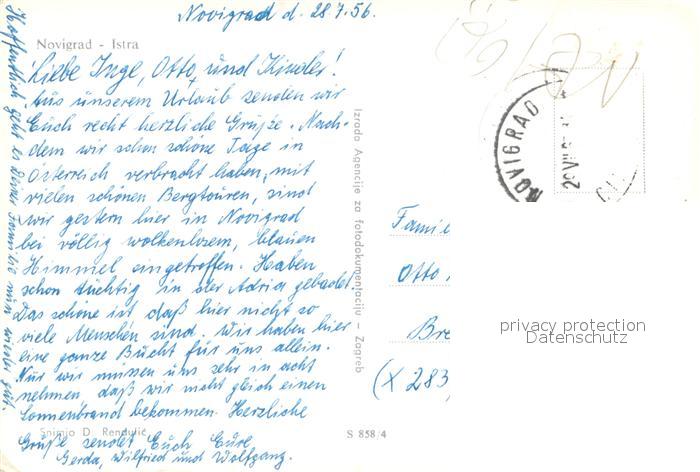 Novigrad d. 28.7.56.
Novigrad - Istra
Liebe Inge, Otto, und Kinder!
Aus unserem Urlaub senden wir
Euch recht herzliche Grüße. Nach-
dem wir schon schöne Tage in
Österreich verbracht haben, mit
vielen schönen Bergtouren, sind
wir gestern hier in Novigrad
bei völlig wolkenlosem, blauen
Himmel eingetroffen. Haben
schon tüchtig in der Adria gebadet.
Das schöne ist, daß hier nicht so
viele Menschen sind. Wir haben hier
eine ganze Bucht für uns allein.
Nur wir müssen uns sehr in acht
nehmen, daß wir nicht gleich einen
Sonnenbrand bekommen. Herzliche
Grüße sendet Euch Eure
Gerda, Wilfried und Wolfgang.
Hoffentlich geht es Deiner Familie nun wieder gut.
Snimio D. Rendulić
S 858/4
Izrada Agencije za fotodokumentaciju - Zagreb
NOVIGRAD
Famil
Otto
Bre
(X 283
privacy protection
Datenschutz